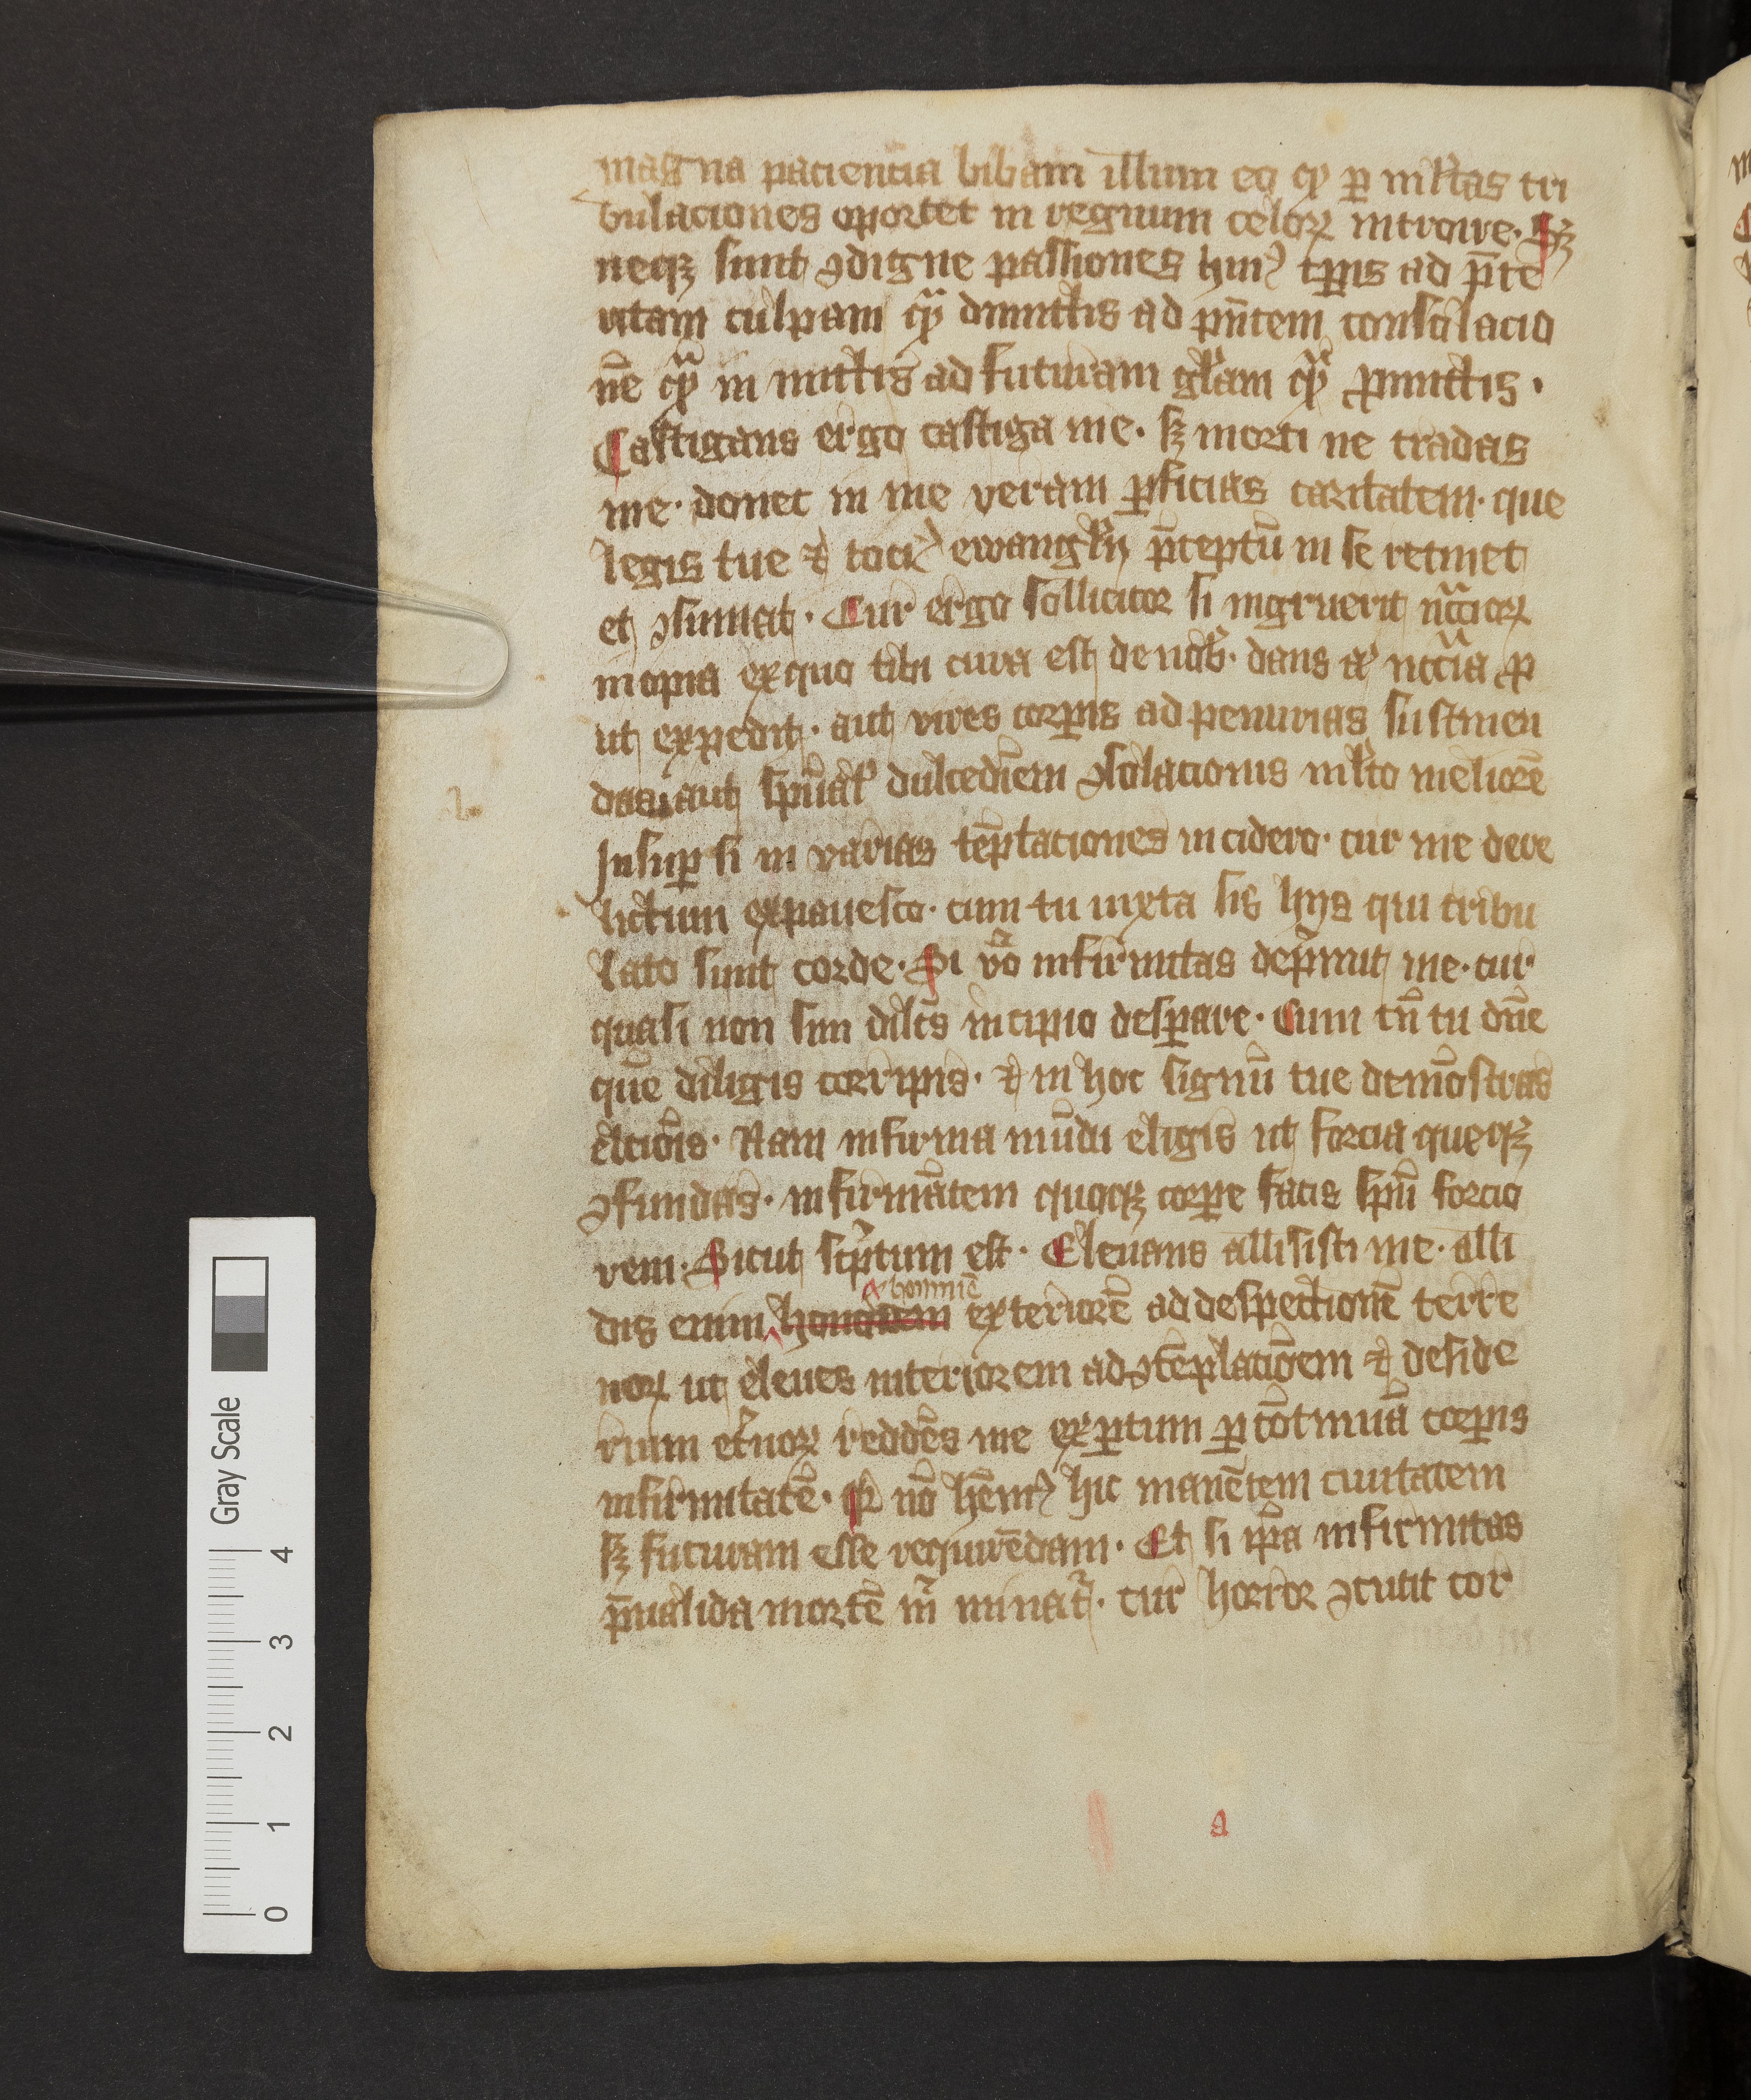 magna paciencia bibam illum eo ꝙ ꝑ ml̅tas tri
bulaciones oportet in regnum celoꝝ introire. Sꝫ
neqꝫ sunt ꝯdigne passiones huiꝰ tꝑis ad p̅te
ritam culpam q̈ dimittis ad pn̅tem consolacio
ne̅ q̈ in mittis ad futuram gl̅am q̈ ꝓmittis.
Castigans ergo castiga me. sꝫ morti ne tradas
me. donec in me veram ꝑficias caritatem. que
legis tue ⁊ tociꝰ ewangl̅ij p̅ceptu̅ in se retinet
et ꝯsumat. Cur ergo sollicitor si ingruerit nccꝛioꝝ
inopia exquo tibi cura est de nob̅. dans aꝉ nccia ꝓ
ut expedit. aut vires corꝑis ad penurias sustinen
das. aut spu̅al̅ dulcedi̅em ꝯsolacionis ml̅to meliore̅
Insuꝑ si in varias te̅ptaciones incidero. cur me dere
lictum expauesco. cum tu iuxta sis hijs qui tribu
lato sunt corde. Si v̊o infirmitas dep̍mit me. cur
quasi non sim dilc̅s incipio desꝑare. Cum tn̅ tu dn̅e
que̅ diligis corripis. ⁊ in hoc signu̅ tue demo̅stras
elcio̅is. Nam infirma mu̅di eligis ut forcia queqꝫ
ꝯfundas. infirma̅tem quoqꝫ corꝑe facis spu̅ forcio
rem. Sicut sc̍ptum est. Eleuans allisisti me. alli
homine̅
dis enim honorem exteriore̅ ad despectione̅ terre
noꝝ ut eleues interiorem ad ꝯte̅placio̅em ⁊ deside
rium et̅noꝝ redde̅s me exꝑtum ꝑ co̅tinua̅ corꝑis
infirmitate̅. qꝛ no̅ he̅mꝰ hic mane̅tem ciuitatem
sꝫ futuram esse require̅dam. Et si ip̅a infirmitas
p̅ualida morte̅ m̍ minat᷑. cur horror ꝯcutit cor
a
Gray Scale
4
3
2
1
0